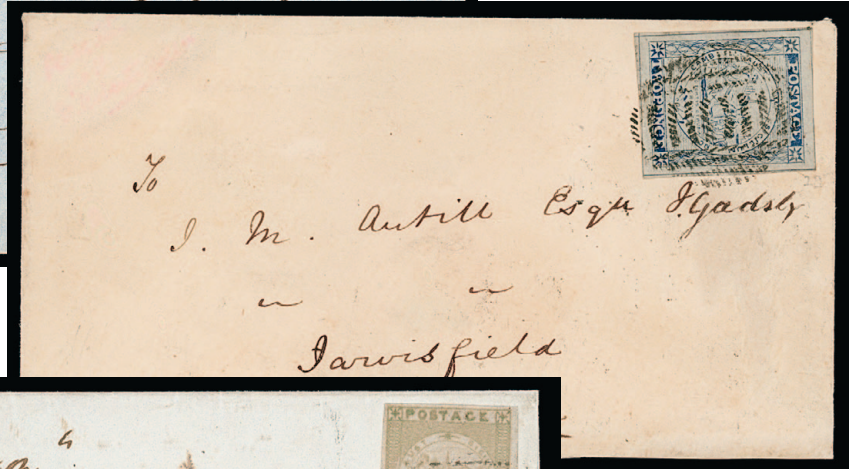 POSTAGE
TWO PENCE
To
J. M. Antill Esqr J. Gadsby
Jarvisfield
POSTAGE